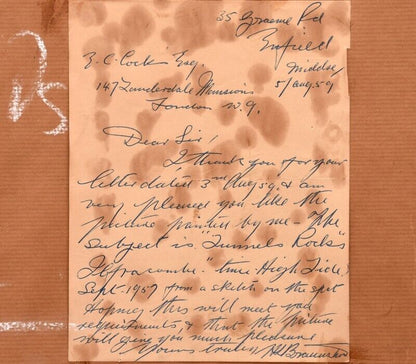 35 Graeme Rd
Enfield
Middsx
5/Aug 59
E. C. Cock Esq.
147 Lauderdale Mansions
London W.9.
Dear Sir!
I thank you for your
letter dated 3rd Aug 59, & am
very pleased you like the
picture painted by me - The
Subject is "Tunnels Rocks"
Ilfracombe." time High Tide
Sept. 1957 from a sketch on the spot
Hoping this will meet your
requirements, & that the picture
will give you much pleasure
Yours truly